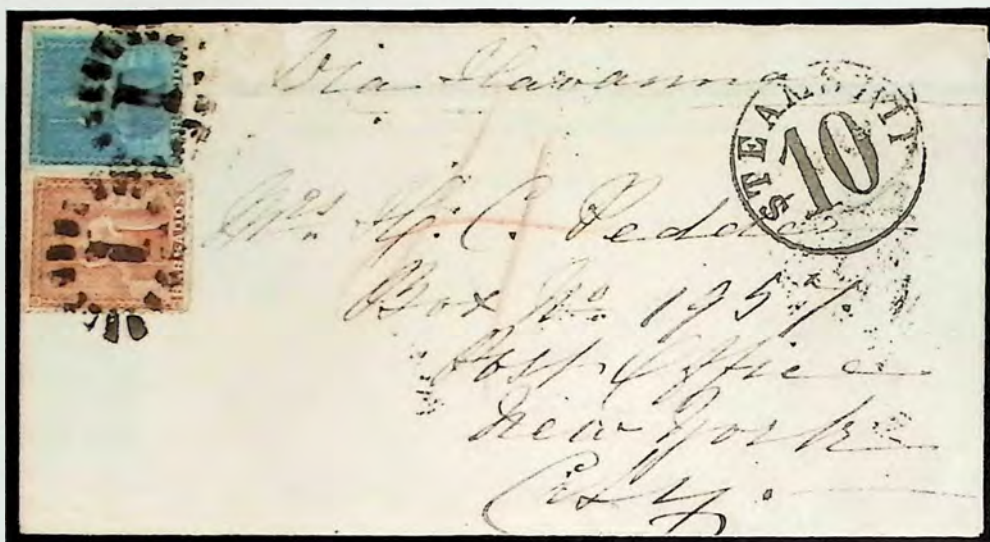 Via Havanna
STEAMSHIP
10
Mrs. H. C. Pedd
Box No. 1957.
Post Office
New York
City.
1
1
BADOS
4